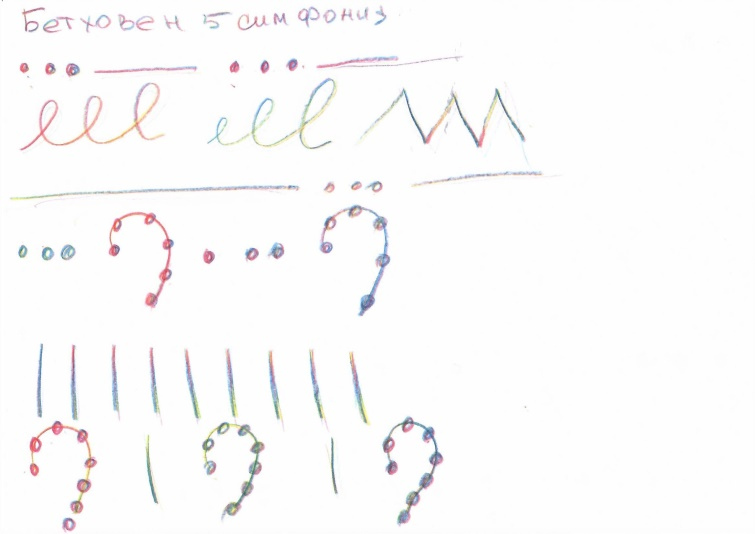 Бетховен 5 симфония